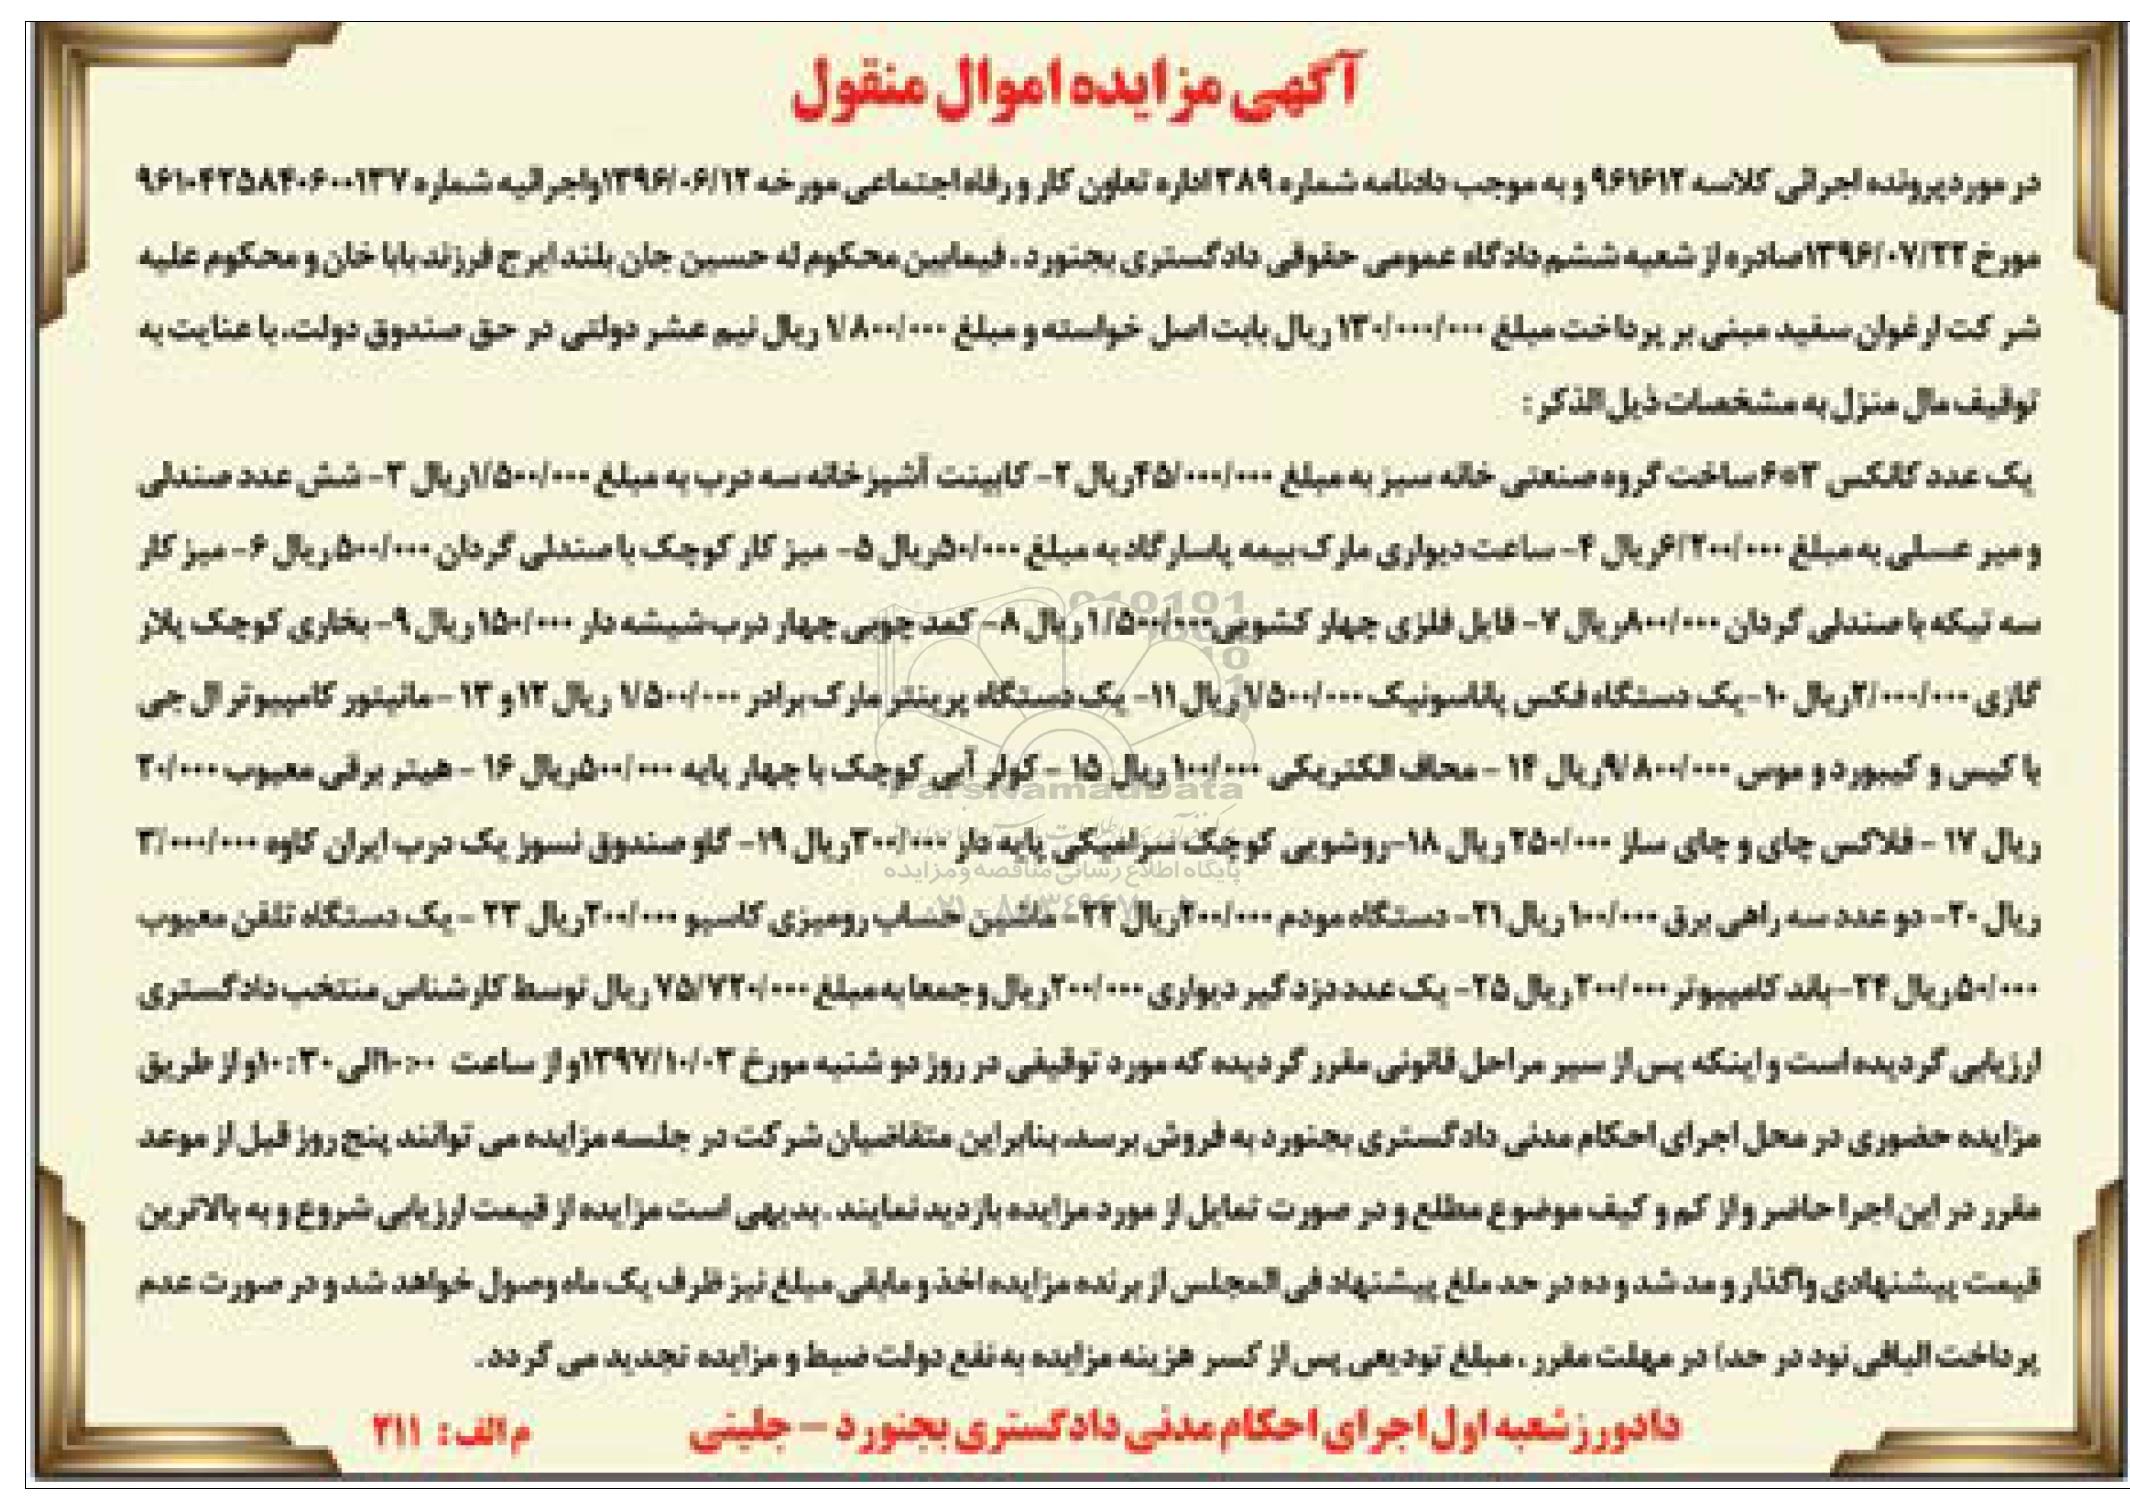 آگهی مزایده اموال منقول
در مورد پرونده اجرائی کلاسه ۹۶۱۶۱۲ و به موجب دادنامه شماره ۳۸۹ اداره تعاون کار و رفاه اجتماعی مورخه ۱۳۹۶/۰۶/۱۲ واجرائیه شماره ۹۶۱۰۴۲۵۸۴۰۶۰۰۱۳۷
مورخ ۱۳۹۶/۰۷/۲۲ صادره از شعبه ششم دادگاه عمومی حقوقی دادگستری بجنورد ، فیمابین محکوم له حسین جان بلند ایرج فرزند بابا خان و محکوم علیه
شرکت ارغوان سفید مبنی بر پرداخت مبلغ ۱۳۰/۰۰۰/۰۰۰ ریال بابت اصل خواسته و مبلغ ۱/۸۰۰/۰۰۰ ریال نیم عشر دولتی در حق صندوق دولت، با عنایت به
توقیف مال منزل به مشخصات ذیل الذکر :
یک عدد کانکس ۳*۶ ساخت گروه صنعتی خانه سبز به مبلغ ۴۵/۰۰۰/۰۰۰ ریال ۲- کابینت آشپزخانه سه درب به مبلغ ۱/۵۰۰/۰۰۰ ریال ۳- شش عدد صندلی
و میر عسلی به مبلغ ۶/۲۰۰/۰۰۰ ریال ۴- ساعت دیواری مارک بیمه پاسارگاد به مبلغ ۵۰/۰۰۰ ریال ۵- میز کار کوچک با صندلی گردان ۵۰۰/۰۰۰ ریال ۶- میز کار
سه تیکه با صندلی گردان ۸۰۰/۰۰۰ ریال ۷- فایل فلزی چهار کشویی ۱/۵۰۰/۰۰۰ ریال ۸- کمد چوبی چهار درب شیشه دار ۱۵۰/۰۰۰ ریال ۹- بخاری کوچک پلار
گازی ۲/۰۰۰/۰۰۰ ریال ۱۰- یک دستگاه فکس پاناسونیک ۱/۵۰۰/۰۰۰ ریال ۱۱- یک دستگاه پرینتر مارک برادر ۱/۵۰۰/۰۰۰ ریال ۱۲ و ۱۳ - مانیتور کامپیوتر ال جی
با کیس و کیبورد و موس ۹/۸۰۰/۰۰۰ ریال ۱۴ - محاف الکتریکی ۱۰۰/۰۰۰ ریال ۱۵ - کولر آبی کوچک با چهار پایه ۵۰۰/۰۰۰ ریال ۱۶ - هیتر برقی معیوب ۲۰/۰۰۰
ریال ۱۷ - فلاکس چای و چای ساز ۲۵۰/۰۰۰ ریال ۱۸- روشویی کوچک سرامیکی پایه دار ۳۰۰/۰۰۰ ریال ۱۹- گاو صندوق نسوز یک درب ایران کاوه ۳/۰۰۰/۰۰۰
ریال ۲۰- دو عدد سه راهی برق ۱۰۰/۰۰۰ ریال ۲۱- دستگاه مودم ۲۰۰/۰۰۰ ریال ۲۲- ماشین حساب رومیزی کاسیو ۲۰۰/۰۰۰ ریال ۲۳ - یک دستگاه تلفن معیوب
۵۰/۰۰۰ ریال ۲۴- باند کامپیوتر ۲۰۰/۰۰۰ ریال ۲۵- یک عدد دزد گیر دیواری ۲۰۰/۰۰۰ ریال و جمعا به مبلغ ۷۵/۷۲۰/۰۰۰ ریال توسط کارشناس منتخب دادگستری
ارزیابی گردیده است و اینکه پس از سیر مراحل قانونی مقرر گردیده که مورد توقیفی در روز دو شنبه مورخ ۱۳۹۷/۱۰/۰۳ و از ساعت ۱۰:۰۰ الی ۱۰:۳۰ و از طریق
مزایده حضوری در محل اجرای احکام مدنی دادگستری بجنورد به فروش برسد، بنابراین متقاضیان شرکت در جلسه مزایده می توانند پنج روز قبل از موعد
مقرر در این اجرا حاضر و از کم و کیف موضوع مطلع و در صورت تمایل از مورد مزایده بازدید نمایند . بدیهی است مزایده از قیمت ارزیابی شروع و به بالاترین
قیمت پیشنهادی واگذار و مد شد و ده در حد ملغ پیشنهاد فی المجلس از برنده مزایده اخذ و مابقی مبلغ نیز ظرف یک ماه وصول خواهد شد و در صورت عدم
پرداخت الباقی نود در حد) در مهلت مقرر ، مبلغ تودیعی پس از کسر هزینه مزایده به نفع دولت ضبط و مزایده تجدید می گردد.
دادورز شعبه اول اجرای احکام مدنی دادگستری بجنورد - جلینی م الف: ۲۱۱
ParsNamadData
پایگاه اطلاع رسانی مناقصه و مزایده